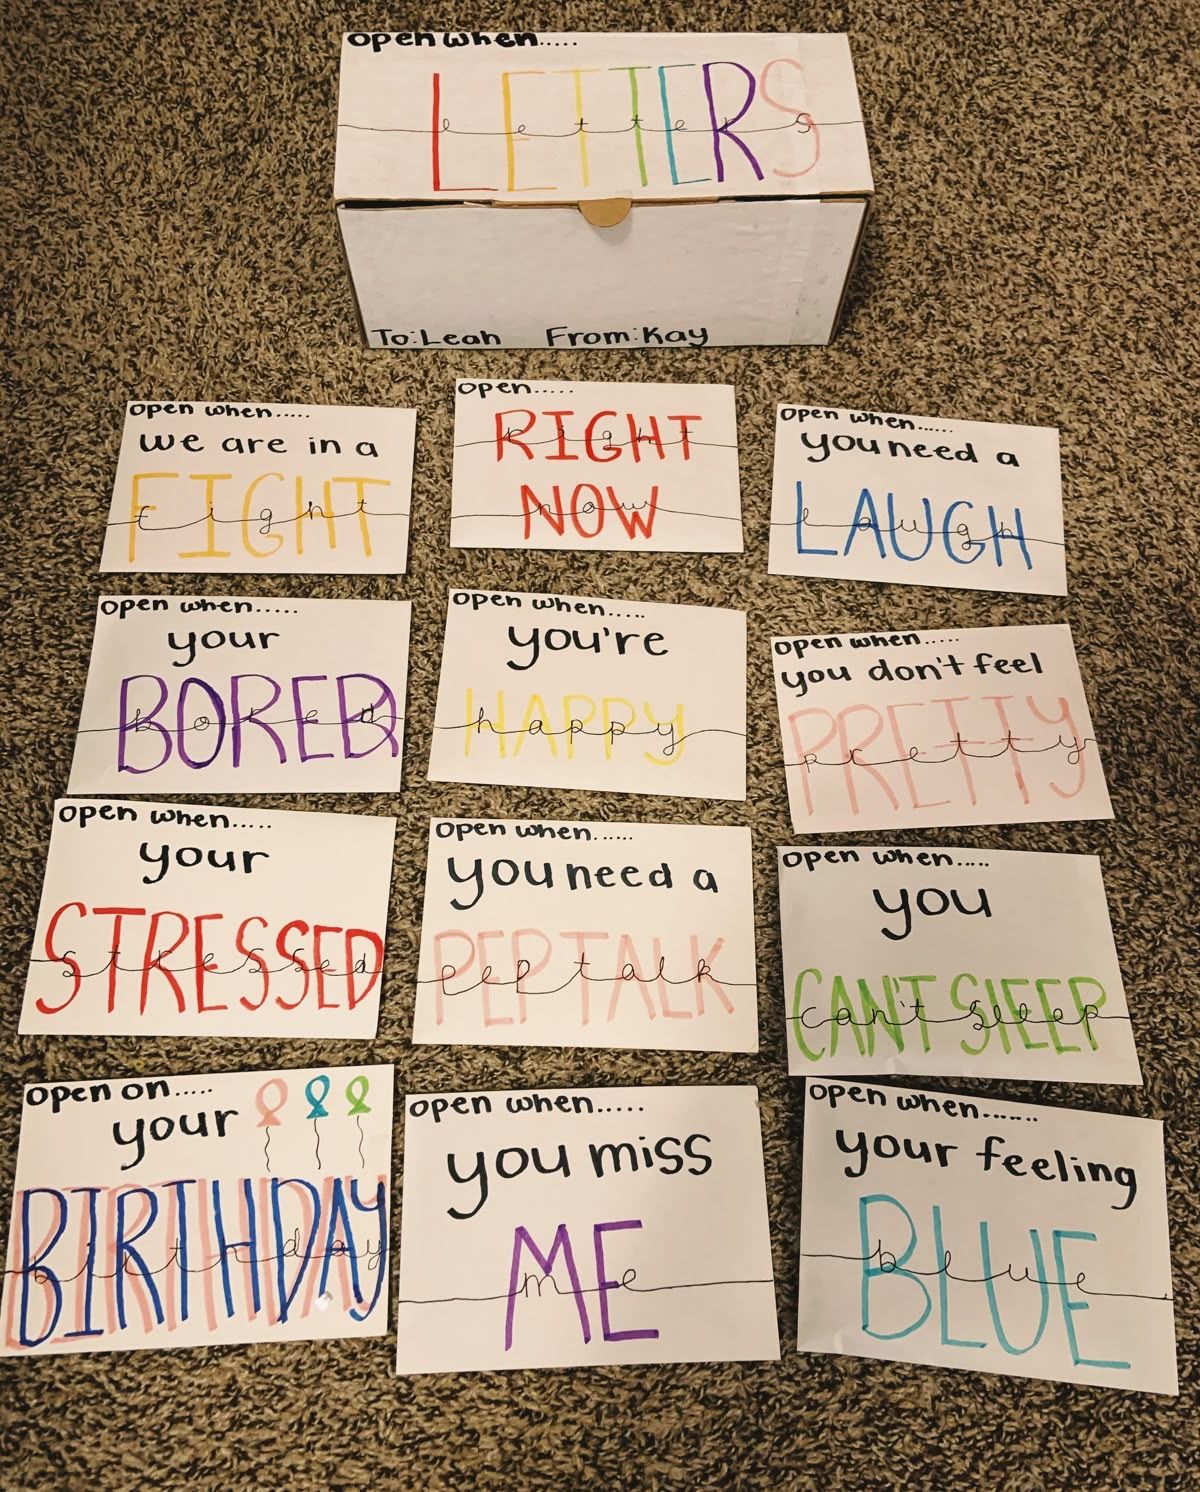 open when.....
LETTERS
letters
To:Leah From:Kay
open when.....
we are in a
FIGHT
fight
open.....
RIGHT
right
NOW
now
open when......
you need a
LAUGH
laugh
open when.....
your
BORED
bored
open when.....
you're
HAPPY
happy
open when.....
you don't feel
PRETTY
pretty
open when.....
your
STRESSED
stressed
open when......
you need a
PEP TALK
pep talk
open when.....
you
CAN'T SlEEP
can't sleep
open on.....
your
BIRTHDAY
birthday
open when.....
you miss
ME
me
open when.......
your feeling
BLUE
blue